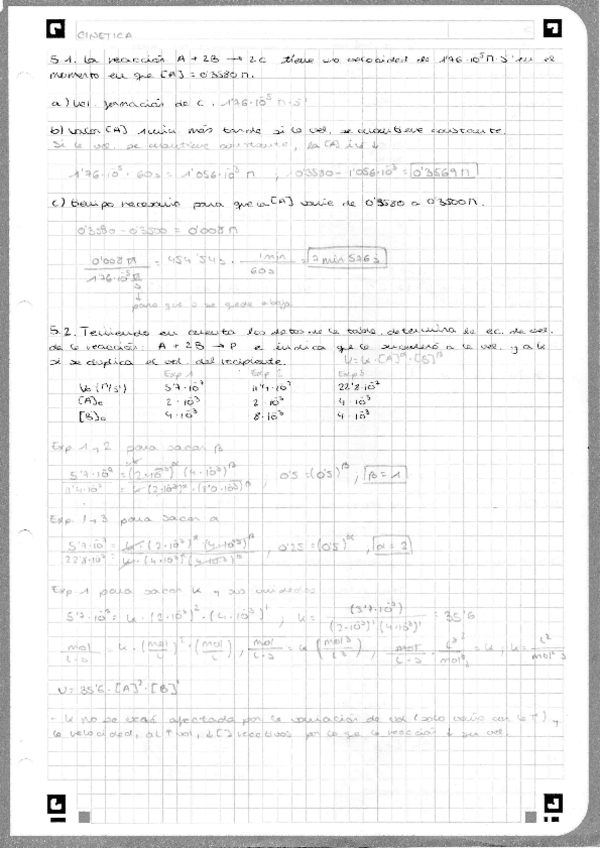 CINETICA
5.1. La reacción A + 2B → 2C tiene una velocidad de 1'76·10⁻⁵ M·s⁻¹ en el
momento en que [A] = 0'3580 M.
a) Vel. formación de C. 1'76·10⁻⁵ M·s⁻¹
b) Valor [A] 1 min más tarde si la vel. se mantiene constante.
Si la vel. se mantiene constante, la [A] irá ↓
1'76·10⁻⁵ · 60s = 1'056·10⁻³ M ; 0'3580 - 1'056·10⁻³ = 0'3569 M
c) tiempo necesario para que la [A] varíe de 0'3580 a 0'3500 M.
0'3580 - 0'3500 = 0'008 M
0'008 M / 1'76·10⁻⁵ M/s = 454'54 s · 1 min / 60 s = 7 min 576 s
para que s se quede abajo
5.2. Teniendo en cuenta los datos de la tabla, determina la ec. de vel.
de la reacción: A + 2B → P e indica que le sucederá a la vel. y a k
si se duplica el vol. del recipiente. V = k·[A]^α·[B]^β
Exp 1 Exp 2 Exp 3
V₀ (M/s) 5'7·10⁻⁷ 11'4·10⁻⁷ 22'8·10⁻⁷
[A]₀ 2·10⁻³ 2·10⁻³ 4·10⁻³
[B]₀ 4·10⁻³ 8·10⁻³ 4·10⁻³
Exp 1 y 2 para sacar β
5'7·10⁻⁷ / 11'4·10⁻⁷ = k·(2·10⁻³)^α·(4·10⁻³)^β / k·(2·10⁻³)^α·(8'0·10⁻³)^β ; 0'5 = (0'5)^β ; β = 1
Exp. 1 y 3 para sacar α
5'7·10⁻⁷ / 22'8·10⁻⁷ = k·(2·10⁻³)^α·(4·10⁻³)^β / k·(4·10⁻³)^α·(4·10⁻³)^β ; 0'25 = (0'5)^α ; α = 2
Exp 1 para sacar k y sus unidades
5'7·10⁻⁷ = k·(2·10⁻³)²·(4·10⁻³)¹ ; k = (5'7·10⁻⁷) / (2·10⁻³)²(4·10⁻³)¹ = 35'6
mol / L·s = k·(mol/L)²·(mol/L) ; mol / L·s = k (mol³/L³) ; mol / L·s · L³ / mol³ = k ; k = L² / mol²·s
V = 35'6·[A]²·[B]¹
- k no se verá afectada por la variación de vol (solo varía con la T) y
la velocidad, al ↑ vol, ↓ [ ] reactivos por lo que la reacción ↓ su vel.